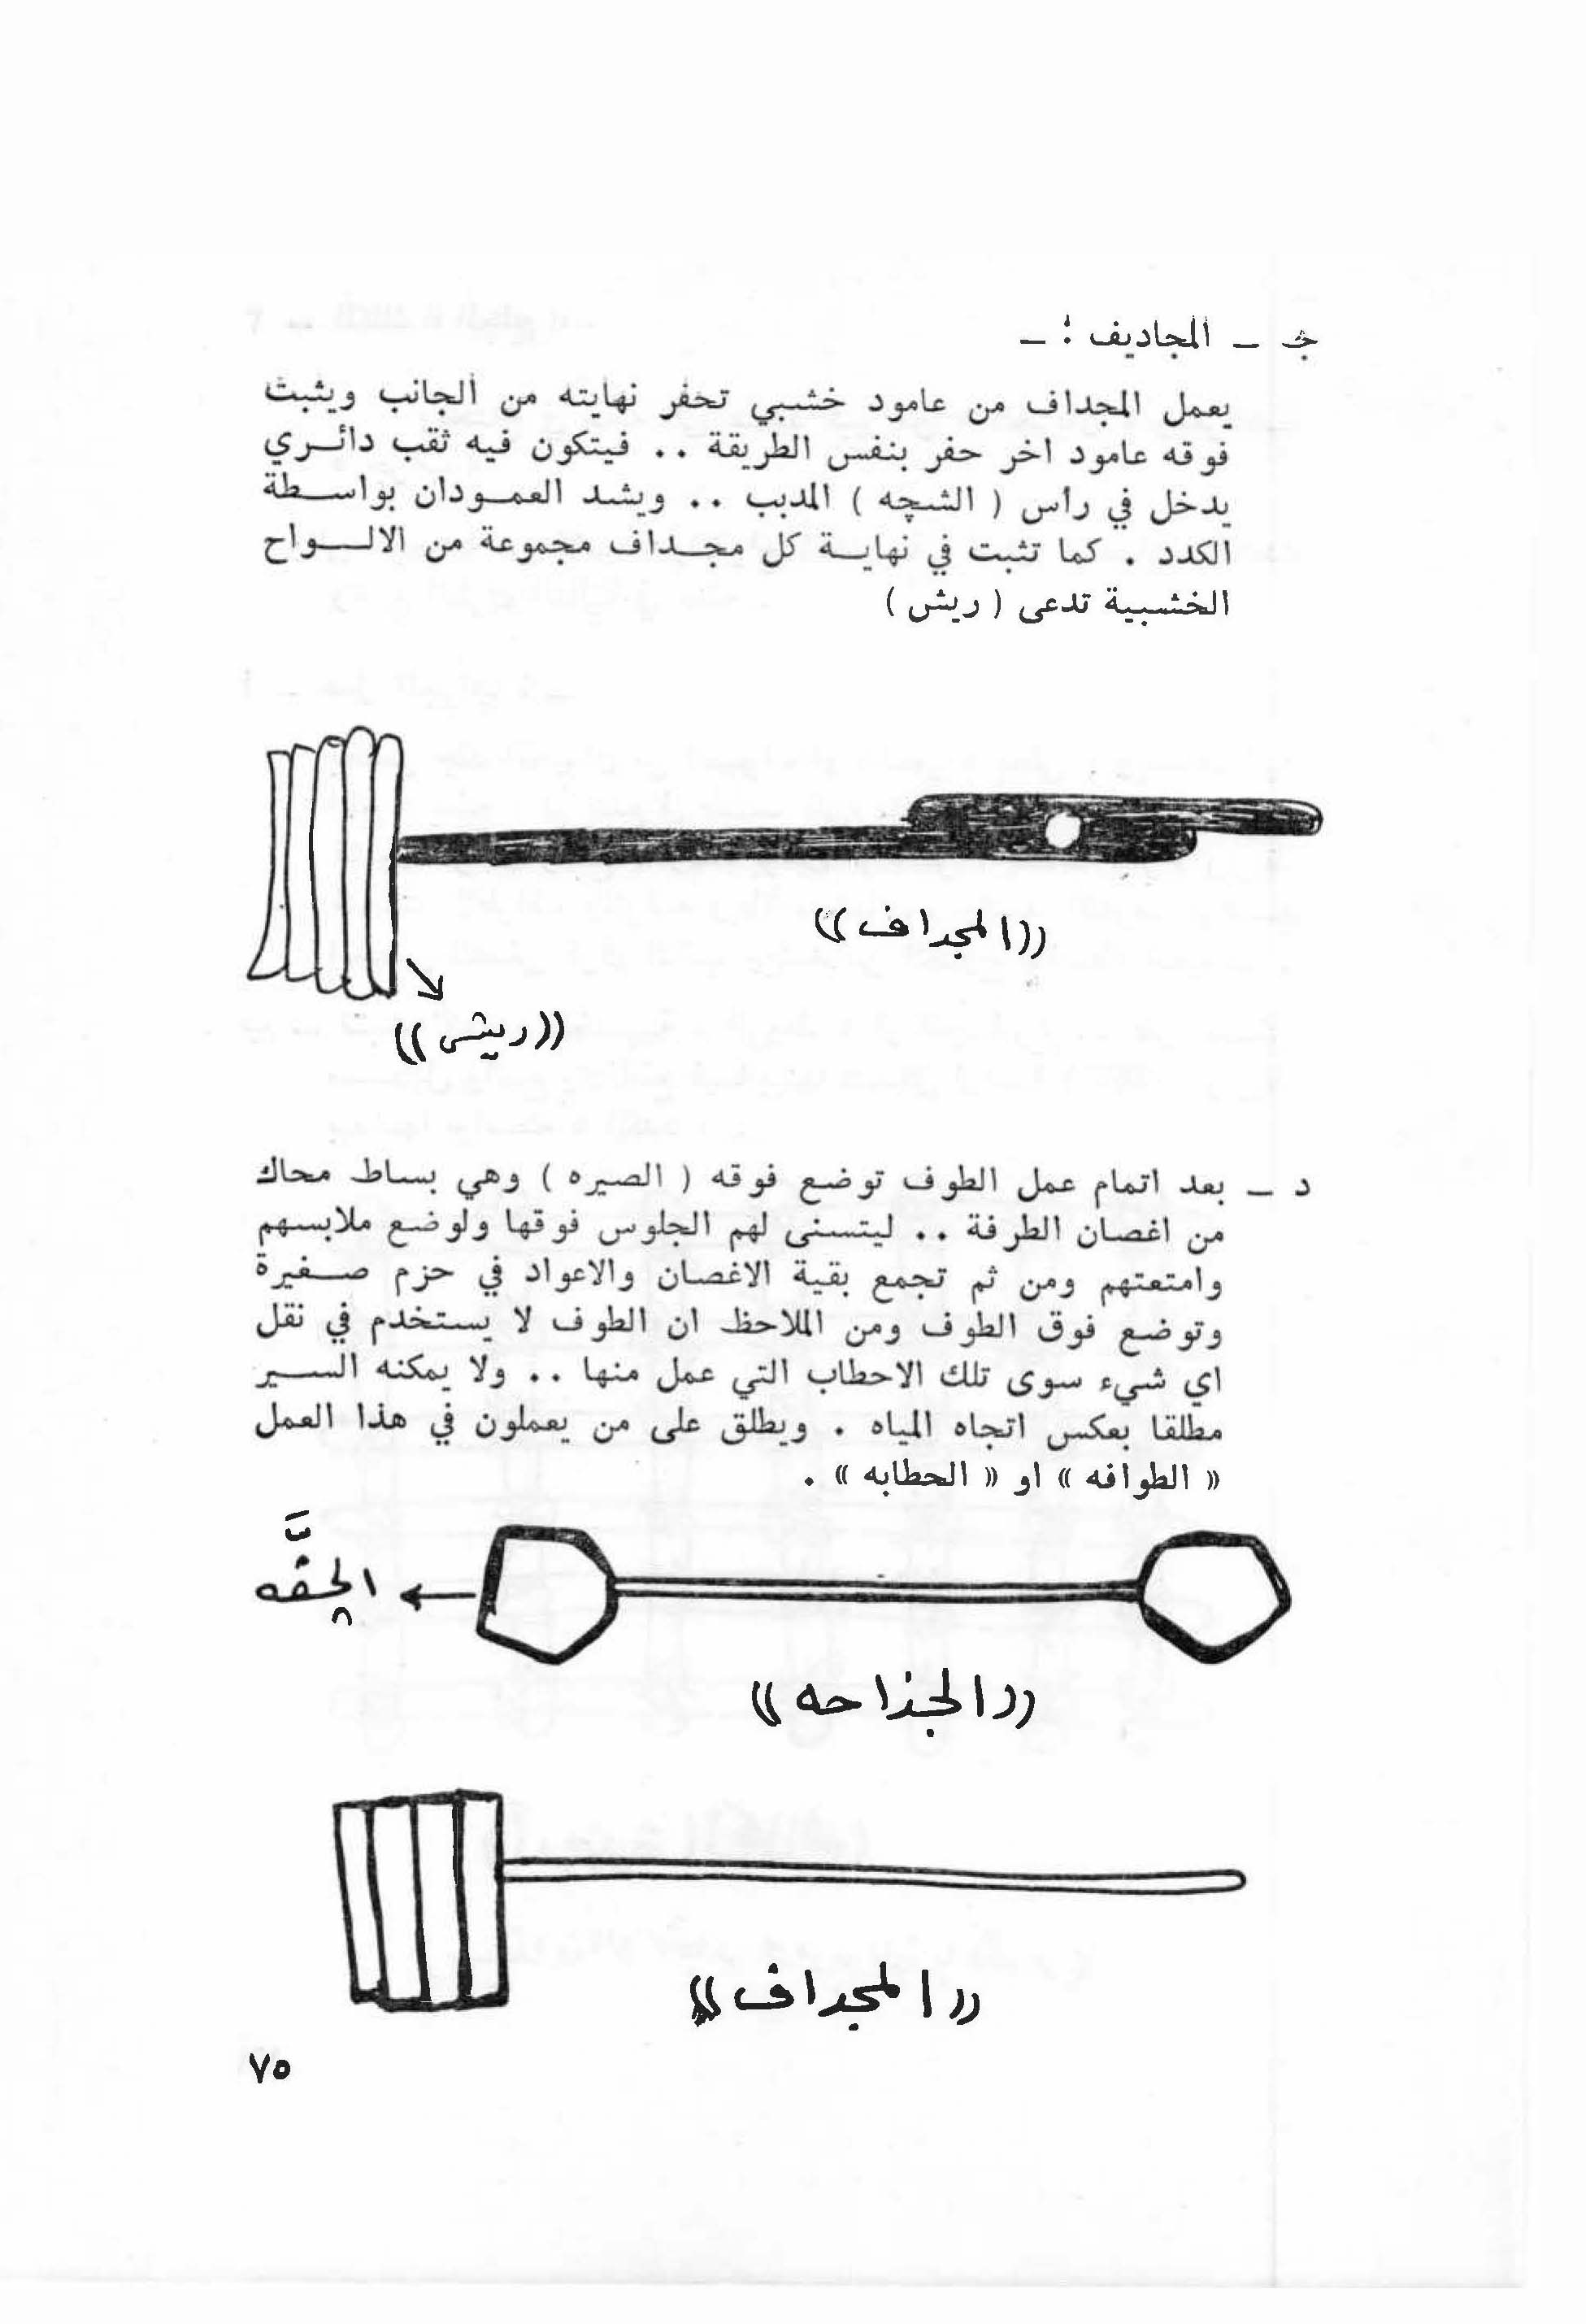 جـ ـ المجاديف : ـ
يعمل المجداف من عامود خشبي تحفر نهايته من الجانب ويثبت
فوقه عامود اخر حفر بنفس الطريقة .. فيتكون فيه ثقب دائــري
يدخل في رأس ( الشچه ) المدبب .. ويشد العمــودان بواســطة
الكدد . كما تثبت في نهايــة كل مجــداف مجموعة من الالــــواح
الخشبية تدعى ( ريش )
((المجداف))
((ريش))
د ـ بعد اتمام عمل الطوف توضع فوقه ( الصيره ) وهي بساط محاك
من اغصان الطرفة .. ليتسنى لهم الجلوس فوقها ولوضع ملابسهم
وامتعتهم ومن ثم تجمع بقية الاغصان والاعواد في حزم صــغيرة
وتوضع فوق الطوف ومن الملاحظ ان الطوف لا يستخدم في نقل
اي شيء سوى تلك الاحطاب التي عمل منها .. ولا يمكنه الســـير
مطلقا بعكس اتجاه المياه . ويطلق على من يعملون في هذا العمل
« الطوافه » او « الحطابه » .
((الجذاحه))
((المجداف))
٧٥